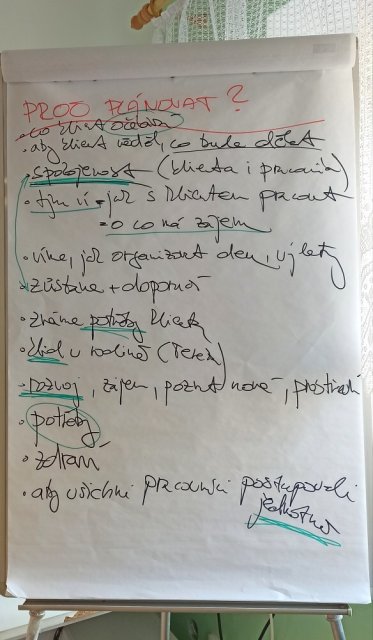 PROČ PLÁNOVAT?
• co klient očekává
• aby klient věděl, co bude dělat
• spokojenost (klienta i pracovníka)
• tým ví = jak s klientem pracovat
= o co má zájem
• víme, jak organizovat den, výlety
• zůstane + doporučí
• známe potřeby klienta
• klid v rodině (Tereza)
• rozvoj, zájem, poznat nové, prostředí
• potřeby
• zdraví
• aby všichni pracovníci postupovali
jednotně